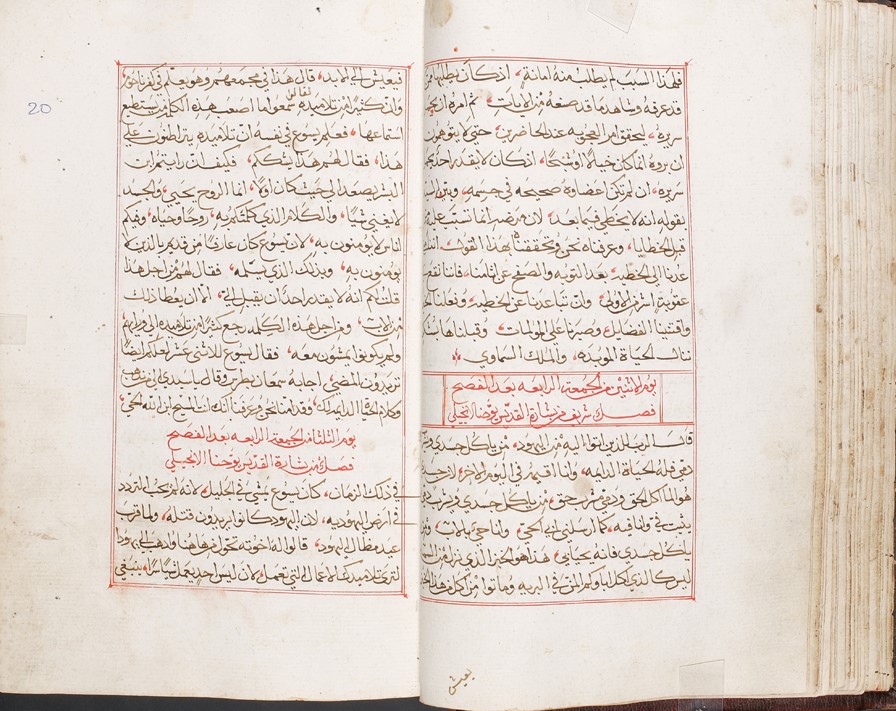 فلهذا السبب لم يطلب منه امانة، اذ كان يطلبها من
قد عرفه وشاهد ما قد صنعه من الايات، ثم امره ان يحمل
سريره، ليحقق امر العجوبه عند الحاضرين، حتى لا يتوهمون
ان بروه انما كان خيالاً، اذ كان لا يقدر احد يحمل
سريره، ان لم تكن اعضاوه صحيحه في جسمه،
بقوله انه لا يخطى فيما بعد، لان مرضه انما تسبب عليه من
قبل الخطايا، وعرفناه نحن وتحققنا بهذا القول، اننا
عدنا الى الخطيه، بعد التوبه والصفح عن اثامنا، فاننا نقع
عقوبة اشر من الاولى، وان تباعدنا عن الخطيه، وفعلنا
واقتنينا الفضايل وصبرنا على المولمات، وقبلناها بشكر
ننال الحياة الموبده، والملك السماوي
يوم الاثنين من الجمعة الرابعه بعد الفصح
فصل شريف من بشارة القديس يوحنا الانجيلي
قال الرب للذين اتوا اليه من اليهود، من ياكل جسدي ويشرب
دمي فله الحياة الدايمه، وانا اقيمه في اليوم الاخر، لان جسدي
هو الماكل الحق ودمي مشرب حق، من ياكل جسدي ويشرب دمي
يثبت في وانا فيه، كما ارسلني الاب الحي، وانا حي بالاب، ومن
ياكل جسدي فانه يحيا بي، هذا هو الخبز الذي نزل من السما
ليس كالذي اكل اباوكم المن في البريه وماتوا، من اكل من هذا الخبز
يعيش
20
فيعيش الى الابد، قال هذا في مجمعهم وهو يعلم في كفرناحوم
وان كثيراً من تلاميذه سمعوا ما اصعب هذه الكلام من يستطيع
استماعها، فعلم يسوع في نفسه ان تلاميذه يتراطنون على
هذا، فقال لهم هذا يشككم، فكيف ان رايتم ابن
البشر يصعد الى حيث كان اولاً، انما الروح يحيي، والجسد
لا يغني شياً، والكلام الذي كلمتكم به، روحاً وحياه، وفيكم
اناس لا يومنون به، لان يسوع كان عارفاً من قديم بالذين لا
يومنون به، وبذلك الذي يسلمه، فقال لهم من اجل هذا
قلت لكم انه لا يقدر احد ان يقبل الي، الا ان يعطا ذلك
من الاب، ومن اجل هذه الكلمه رجع كثيراً من تلاميذه الى وراهم
ولم يكونوا يمشون معه، فقال يسوع للاثني عشر لعلكم ايضاً
تريدون المضي، اجابه سمعان بطرس وقال يا سيدي الى من نذهب
وكلام الحياة الدايمه لك، وقد امنا نحن وعرفنا انك انت المسيح ابن الله الحي،
يوم الثلثا من الجمعة الرابعه بعد الفصح
فصل من بشارة القديس يوحنا الانجيلي
في ذلك الزمان، كان يسوع يمشي في الجليل، لانه لم يحب التردد
في ارض اليهوديه، لان اليهود كانوا يريدون قتله، ولما قرب
عيد مظال اليهود، قالوا له اخوته تحول من هاهنا واذهب الى يهودا
لترى تلاميذك الاعمال التي تعمل، لان ليس احد يعمل شياً سراً، وينبغي